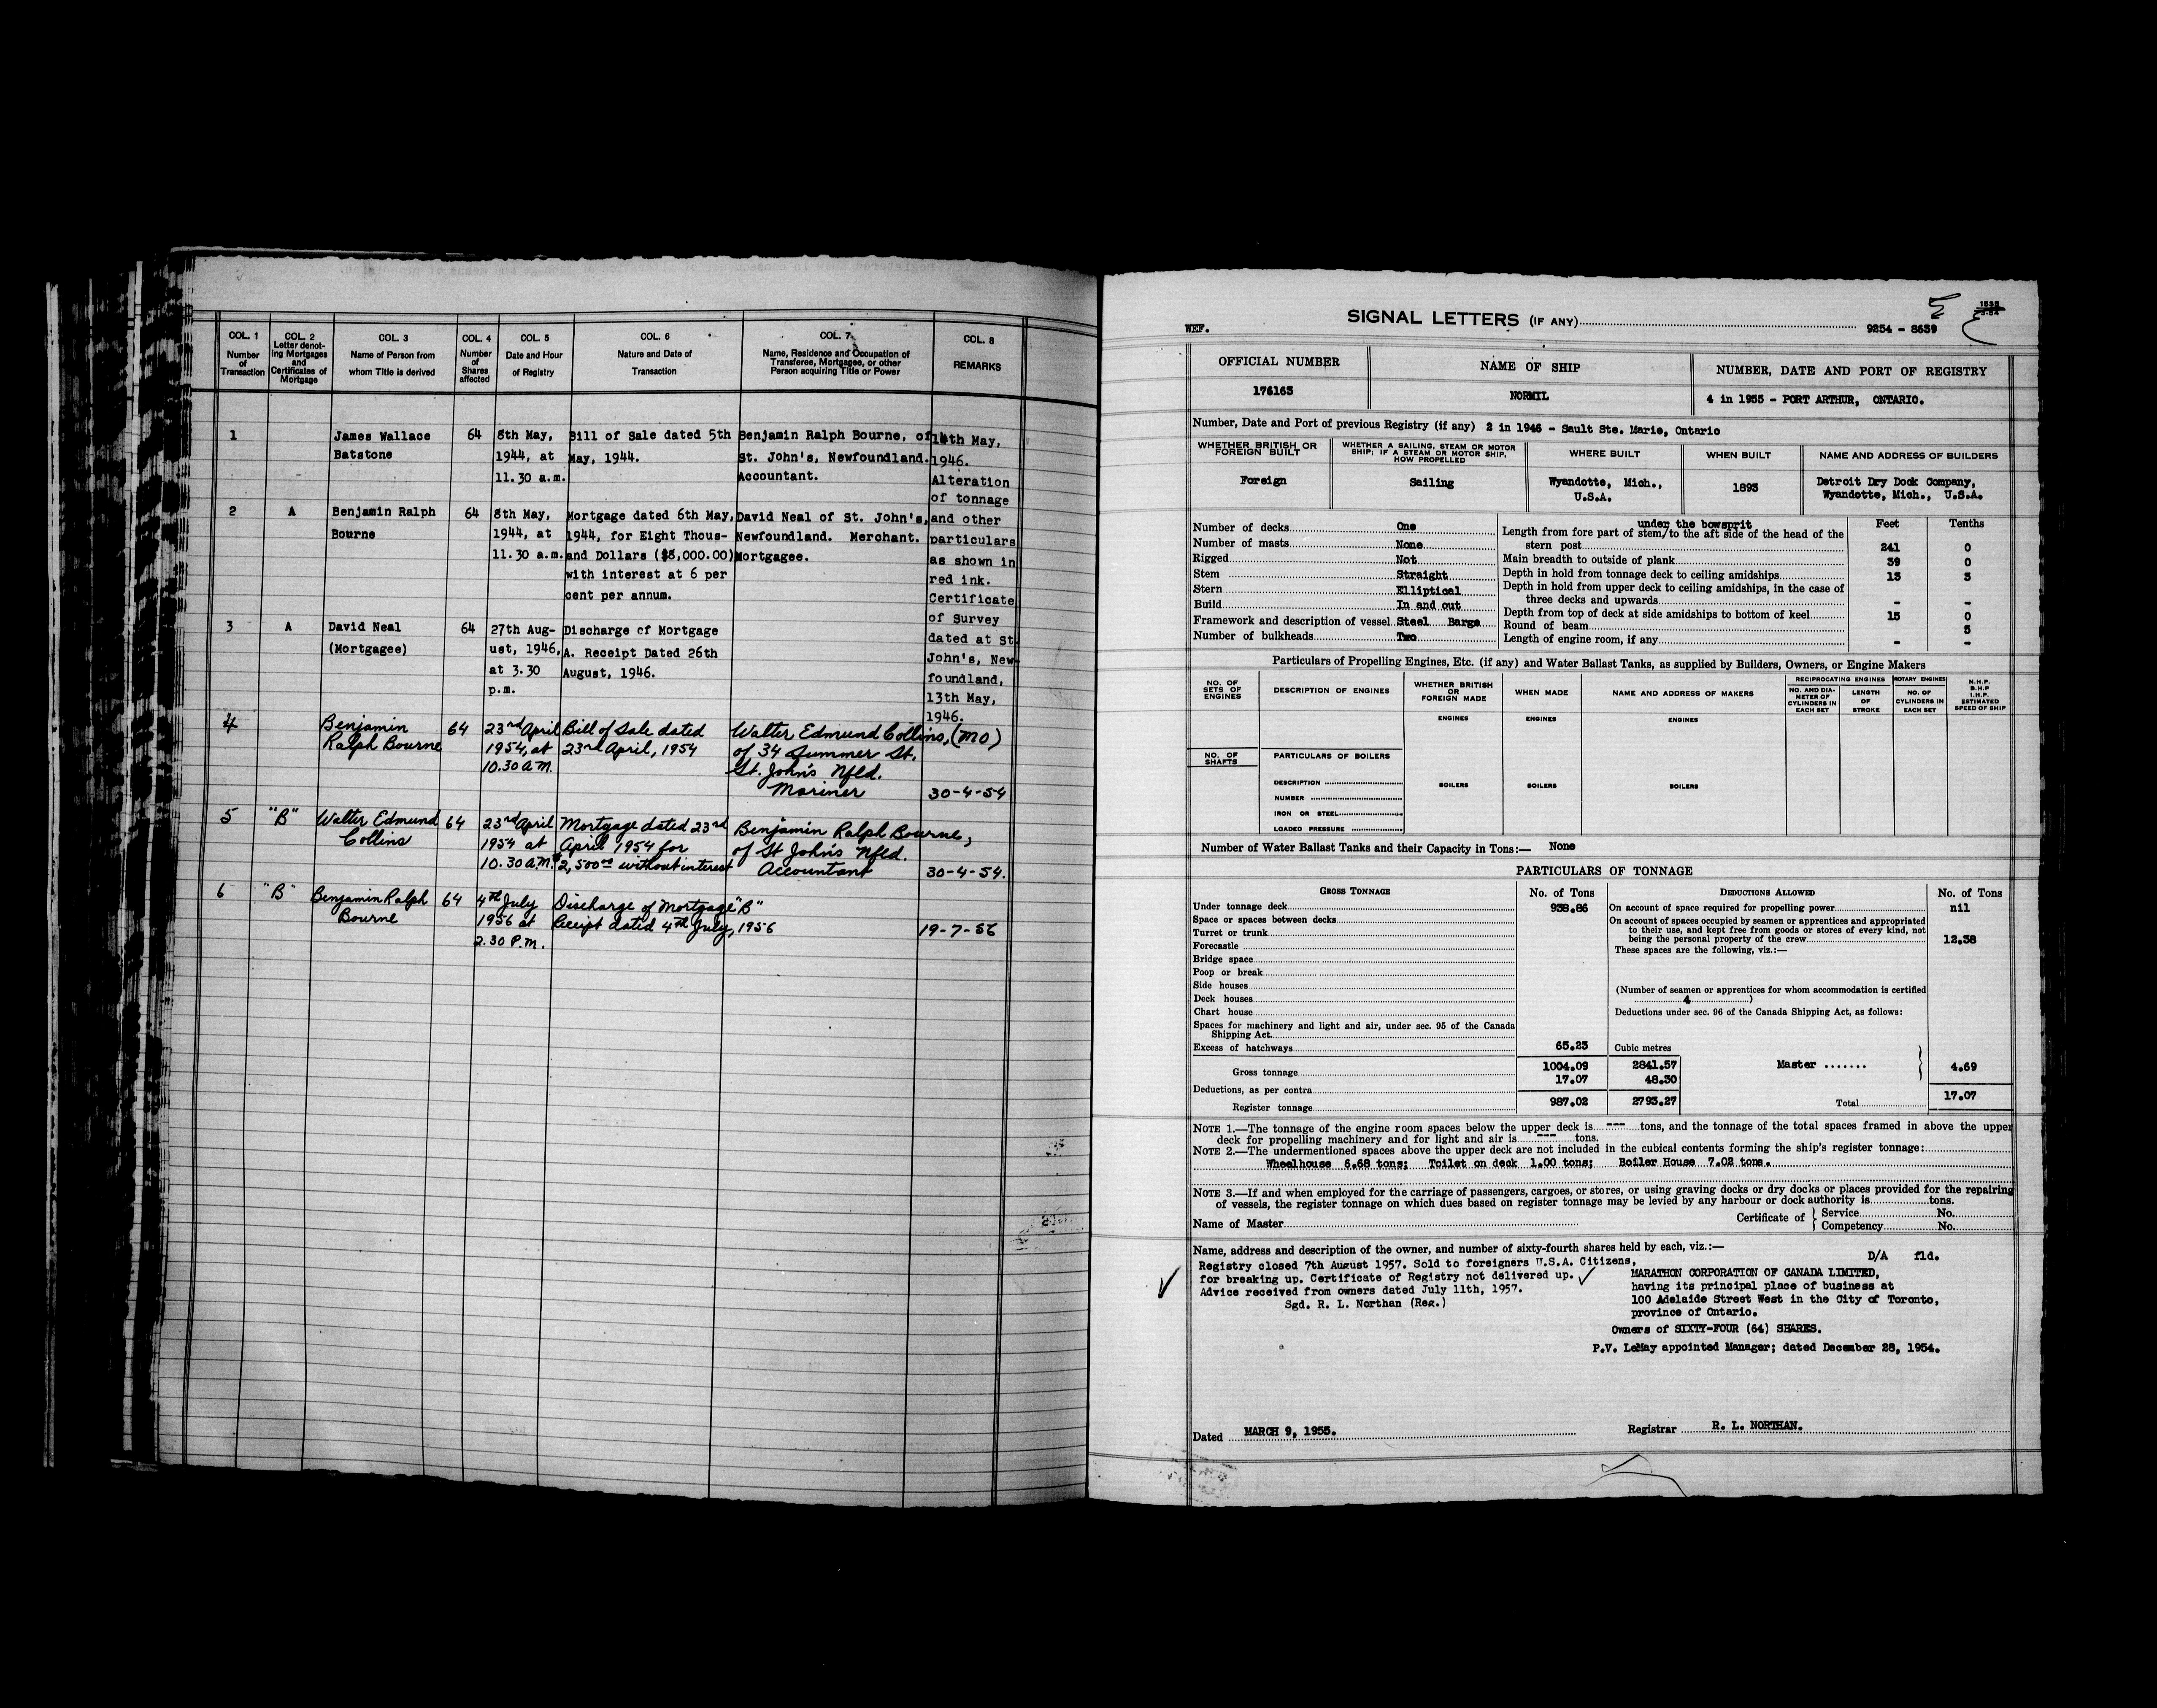 COL. 1 COL. 2 COL. 3 COL. 4 COL. 5 COL. 6 COL. 7 COL. 8
Number of Transaction
Letter denoting Mortgages and Certificates of Mortgage
Name of Person from whom Title is derived
Number of Shares affected
Date and Hour of Registry
Nature and Date of Transaction
Name, Residence and Occupation of Transferee, Mortgagee, or other Person acquiring Title or Power
REMARKS
1 James Wallace 64 8th May, Bill of Sale dated 5th Benjamin Ralph Bourne, of 14th May,
Batstone 1944, at May, 1944. St. John's, Newfoundland. 1946.
11.30 a.m. Accountant. Alteration
of tonnage
2 A Benjamin Ralph 64 8th May, Mortgage dated 6th May, David Neal of St. John's, and other
Bourne 1944, at 1944, for Eight Thous- Newfoundland. Merchant. particulars
11.30 a.m. and Dollars ($8,000.00) Mortgagee. as shown in
with interest at 6 per red ink.
cent per annum. Certificate
of Survey
3 A David Neal 64 27th Aug- Discharge of Mortgage dated at St.
(Mortgagee) ust, 1946, A. Receipt Dated 26th John's, New-
at 3.30 August, 1946. foundland,
p.m. 13th May,
1946.
4 Benjamin 64 23rd April Bill of Sale dated Walter Edmund Collins, (MO)
Ralph Bourne 1954, at 23rd April, 1954 of 34 Summer St.
10.30 A.M. St. John's Nfld.
Mariner 30-4-54
5 "B" Walter Edmund 64 23rd April Mortgage dated 23rd Benjamin Ralph Bourne,
Collins 1954 at April 1954 for of St John's Nfld.
10.30 A.M. $2,500.00 without interest Accountant 30-4-54.
6 "B" Benjamin Ralph 64 4th July Discharge of Mortgage "B"
Bourne 1956 at Receipt dated 4th July, 1956 19-7-56
2.30 P.M.
WEF. SIGNAL LETTERS (IF ANY) 9254 - 8639
OFFICIAL NUMBER NAME OF SHIP NUMBER, DATE AND PORT OF REGISTRY
176163 NORMIL 4 in 1955 - PORT ARTHUR, ONTARIO.
Number, Date and Port of previous Registry (if any) 2 in 1946 - Sault Ste. Marie, Ontario
WHETHER BRITISH OR FOREIGN BUILT
WHETHER A SAILING, STEAM OR MOTOR SHIP; IF A STEAM OR MOTOR SHIP, HOW PROPELLED
WHERE BUILT WHEN BUILT NAME AND ADDRESS OF BUILDERS
Foreign Sailing Wyandotte, Mich., 1893 Detroit Dry Dock Company,
U.S.A. Wyandotte, Mich., U.S.A.
Feet Tenths
Number of decks One
Number of masts None
Rigged Not
Stem Straight
Stern Elliptical
Build In and out
Framework and description of vessel Steel Barge
Number of bulkheads Two
under the bowsprit
Length from fore part of stem/to the aft side of the head of the
stern post 241 0
Main breadth to outside of plank 39 0
Depth in hold from tonnage deck to ceiling amidships 13 3
Depth in hold from upper deck to ceiling amidships, in the case of
three decks and upwards - -
Depth from top of deck at side amidships to bottom of keel 15 0
Round of beam 3
Length of engine room, if any - -
Particulars of Propelling Engines, Etc. (if any) and Water Ballast Tanks, as supplied by Builders, Owners, or Engine Makers
NO. OF SETS OF ENGINES
DESCRIPTION OF ENGINES
WHETHER BRITISH OR FOREIGN MADE
WHEN MADE
NAME AND ADDRESS OF MAKERS
RECIPROCATING ENGINES
NO. AND DIAMETER OF CYLINDERS IN EACH SET
LENGTH OF STROKE
ROTARY ENGINES
NO. OF CYLINDERS IN EACH SET
N.H.P.
B.H.P
I.H.P.
ESTIMATED SPEED OF SHIP
ENGINES ENGINES ENGINES
NO. OF SHAFTS
PARTICULARS OF BOILERS
DESCRIPTION
NUMBER
IRON OR STEEL
LOADED PRESSURE
BOILERS BOILERS BOILERS
Number of Water Ballast Tanks and their Capacity in Tons:— None
PARTICULARS OF TONNAGE
GROSS TONNAGE No. of Tons DEDUCTIONS ALLOWED No. of Tons
Under tonnage deck 938.86
Space or spaces between decks
Turret or trunk
Forecastle
Bridge space
Poop or break
Side houses
Deck houses
Chart house
Spaces for machinery and light and air, under sec. 95 of the Canada
Shipping Act
Excess of hatchways 65.23 Cubic metres
Gross tonnage 1004.09 2841.57
Deductions, as per contra 17.07 48.30
Register tonnage 987.02 2793.27
On account of space required for propelling power nil
On account of spaces occupied by seamen or apprentices and appropriated
to their use, and kept free from goods or stores of every kind, not
being the personal property of the crew 12.38
These spaces are the following, viz.:—
(Number of seamen or apprentices for whom accommodation is certified
4 )
Deductions under sec. 96 of the Canada Shipping Act, as follows:
Master ....... 4.69
Total 17.07
NOTE 1.—The tonnage of the engine room spaces below the upper deck is --- tons, and the tonnage of the total spaces framed in above the upper
deck for propelling machinery and for light and air is --- tons.
NOTE 2.—The undermentioned spaces above the upper deck are not included in the cubical contents forming the ship's register tonnage:
Wheelhouse 6.68 tons; Toilet on deck 1.00 tons; Boiler House 7.02 tons.
NOTE 3.—If and when employed for the carriage of passengers, cargoes, or stores, or using graving docks or dry docks or places provided for the repairing
of vessels, the register tonnage on which dues based on register tonnage may be levied by any harbour or dock authority is tons.
Name of Master Certificate of Service No.
Competency No.
Name, address and description of the owner, and number of sixty-fourth shares held by each, viz.:—
D/A fld.
Registry closed 7th August 1957. Sold to foreigners U.S.A. Citizens,
for breaking up. Certificate of Registry not delivered up.
Advice received from owners dated July 11th, 1957.
Sgd. R. L. Northan (Reg.)
MARATHON CORPORATION OF CANADA LIMITED,
having its principal place of business at
100 Adelaide Street West in the City of Toronto,
province of Ontario.
Owners of SIXTY-FOUR (64) SHARES.
P.V. LeMay appointed Manager; dated December 28, 1954.
Dated MARCH 9, 1955. Registrar R. L. NORTHAN.